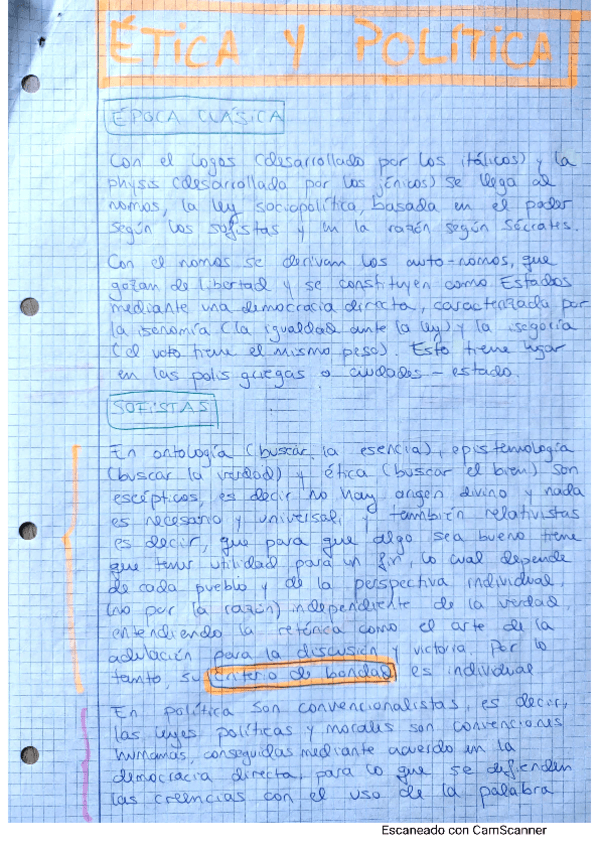 ÉTICA Y POLÍTICA
ÉPOCA CLÁSICA
Con el logos (desarrollado por los itálicos) y la
physis (desarrollada por los jónicos) se llega al
nomos, la ley sociopolítica, basada en el poder
según los sofistas y en la razón según Sócrates.
Con el nomos se derivan los auto-nomos, que
gozan de libertad y se constituyen como Estados
mediante una democracia directa, caracterizada por
la isonomía (la igualdad ante la ley) y la isegoría
(el voto tiene el mismo peso). Esto tiene lugar
en las polis griegas o ciudades-estado.
SOFISTAS
En ontología (buscar la esencia), epistemología
(buscar la verdad) y ética (buscar el bien) son
escépticos, es decir no hay origen divino y nada
es necesario y universal, y también relativistas
es decir, que para que algo sea bueno tiene
que tener utilidad para un fin, lo cual depende
de cada pueblo y de la perspectiva individual,
(no por la razón) independiente de la verdad,
entendiendo la retórica como el arte de la
adulación para la discusión y victoria. Por lo
tanto, su criterio de bondad es individual
En política son convencionalistas, es decir,
las leyes políticas y morales son convenciones
humanas, conseguidas mediante acuerdo en la
democracia directa, para lo que se defienden
las creencias con el uso de la palabra
Escaneado con CamScanner